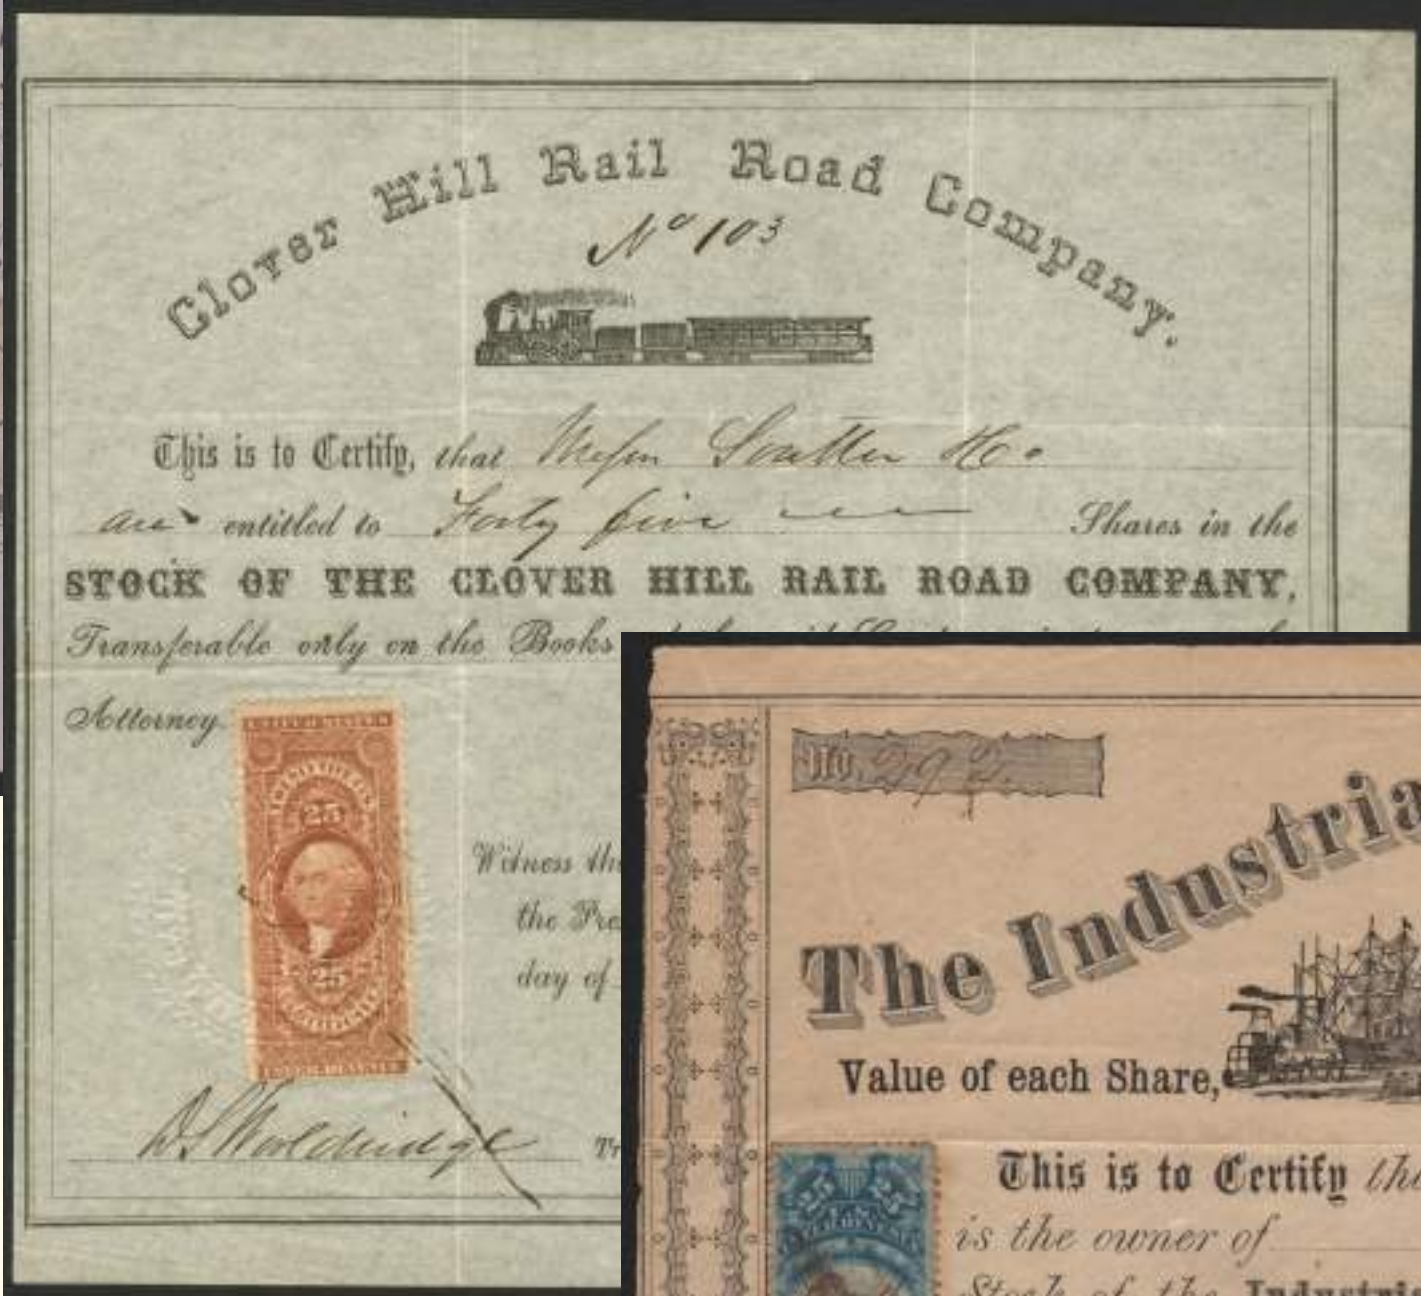 Clover Hill Rail Road Company.
No 103
This is to Certify, that Messrs Soutter & Co
are entitled to Forty five Shares in the
STOCK OF THE CLOVER HILL RAIL ROAD COMPANY,
Transferable only on the Books
Attorney
25
25
Witness the
the Pre
day of
D S Wooldridge Tr
No. 292.
The Industria
Value of each Share,
This is to Certify tha
25 25
is the owner of
Stock of the Industri